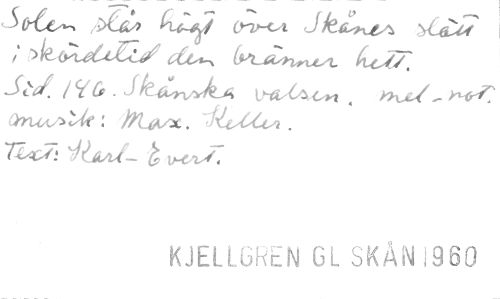 Solen står högt över Skånes slätt
i skördetid den bränner hett.
Sid. 146. Skånska valsen. mel-not.
musik: Max. Keller.
Text: Karl-Evert.
KJELLGREN GL SKÅN 1960